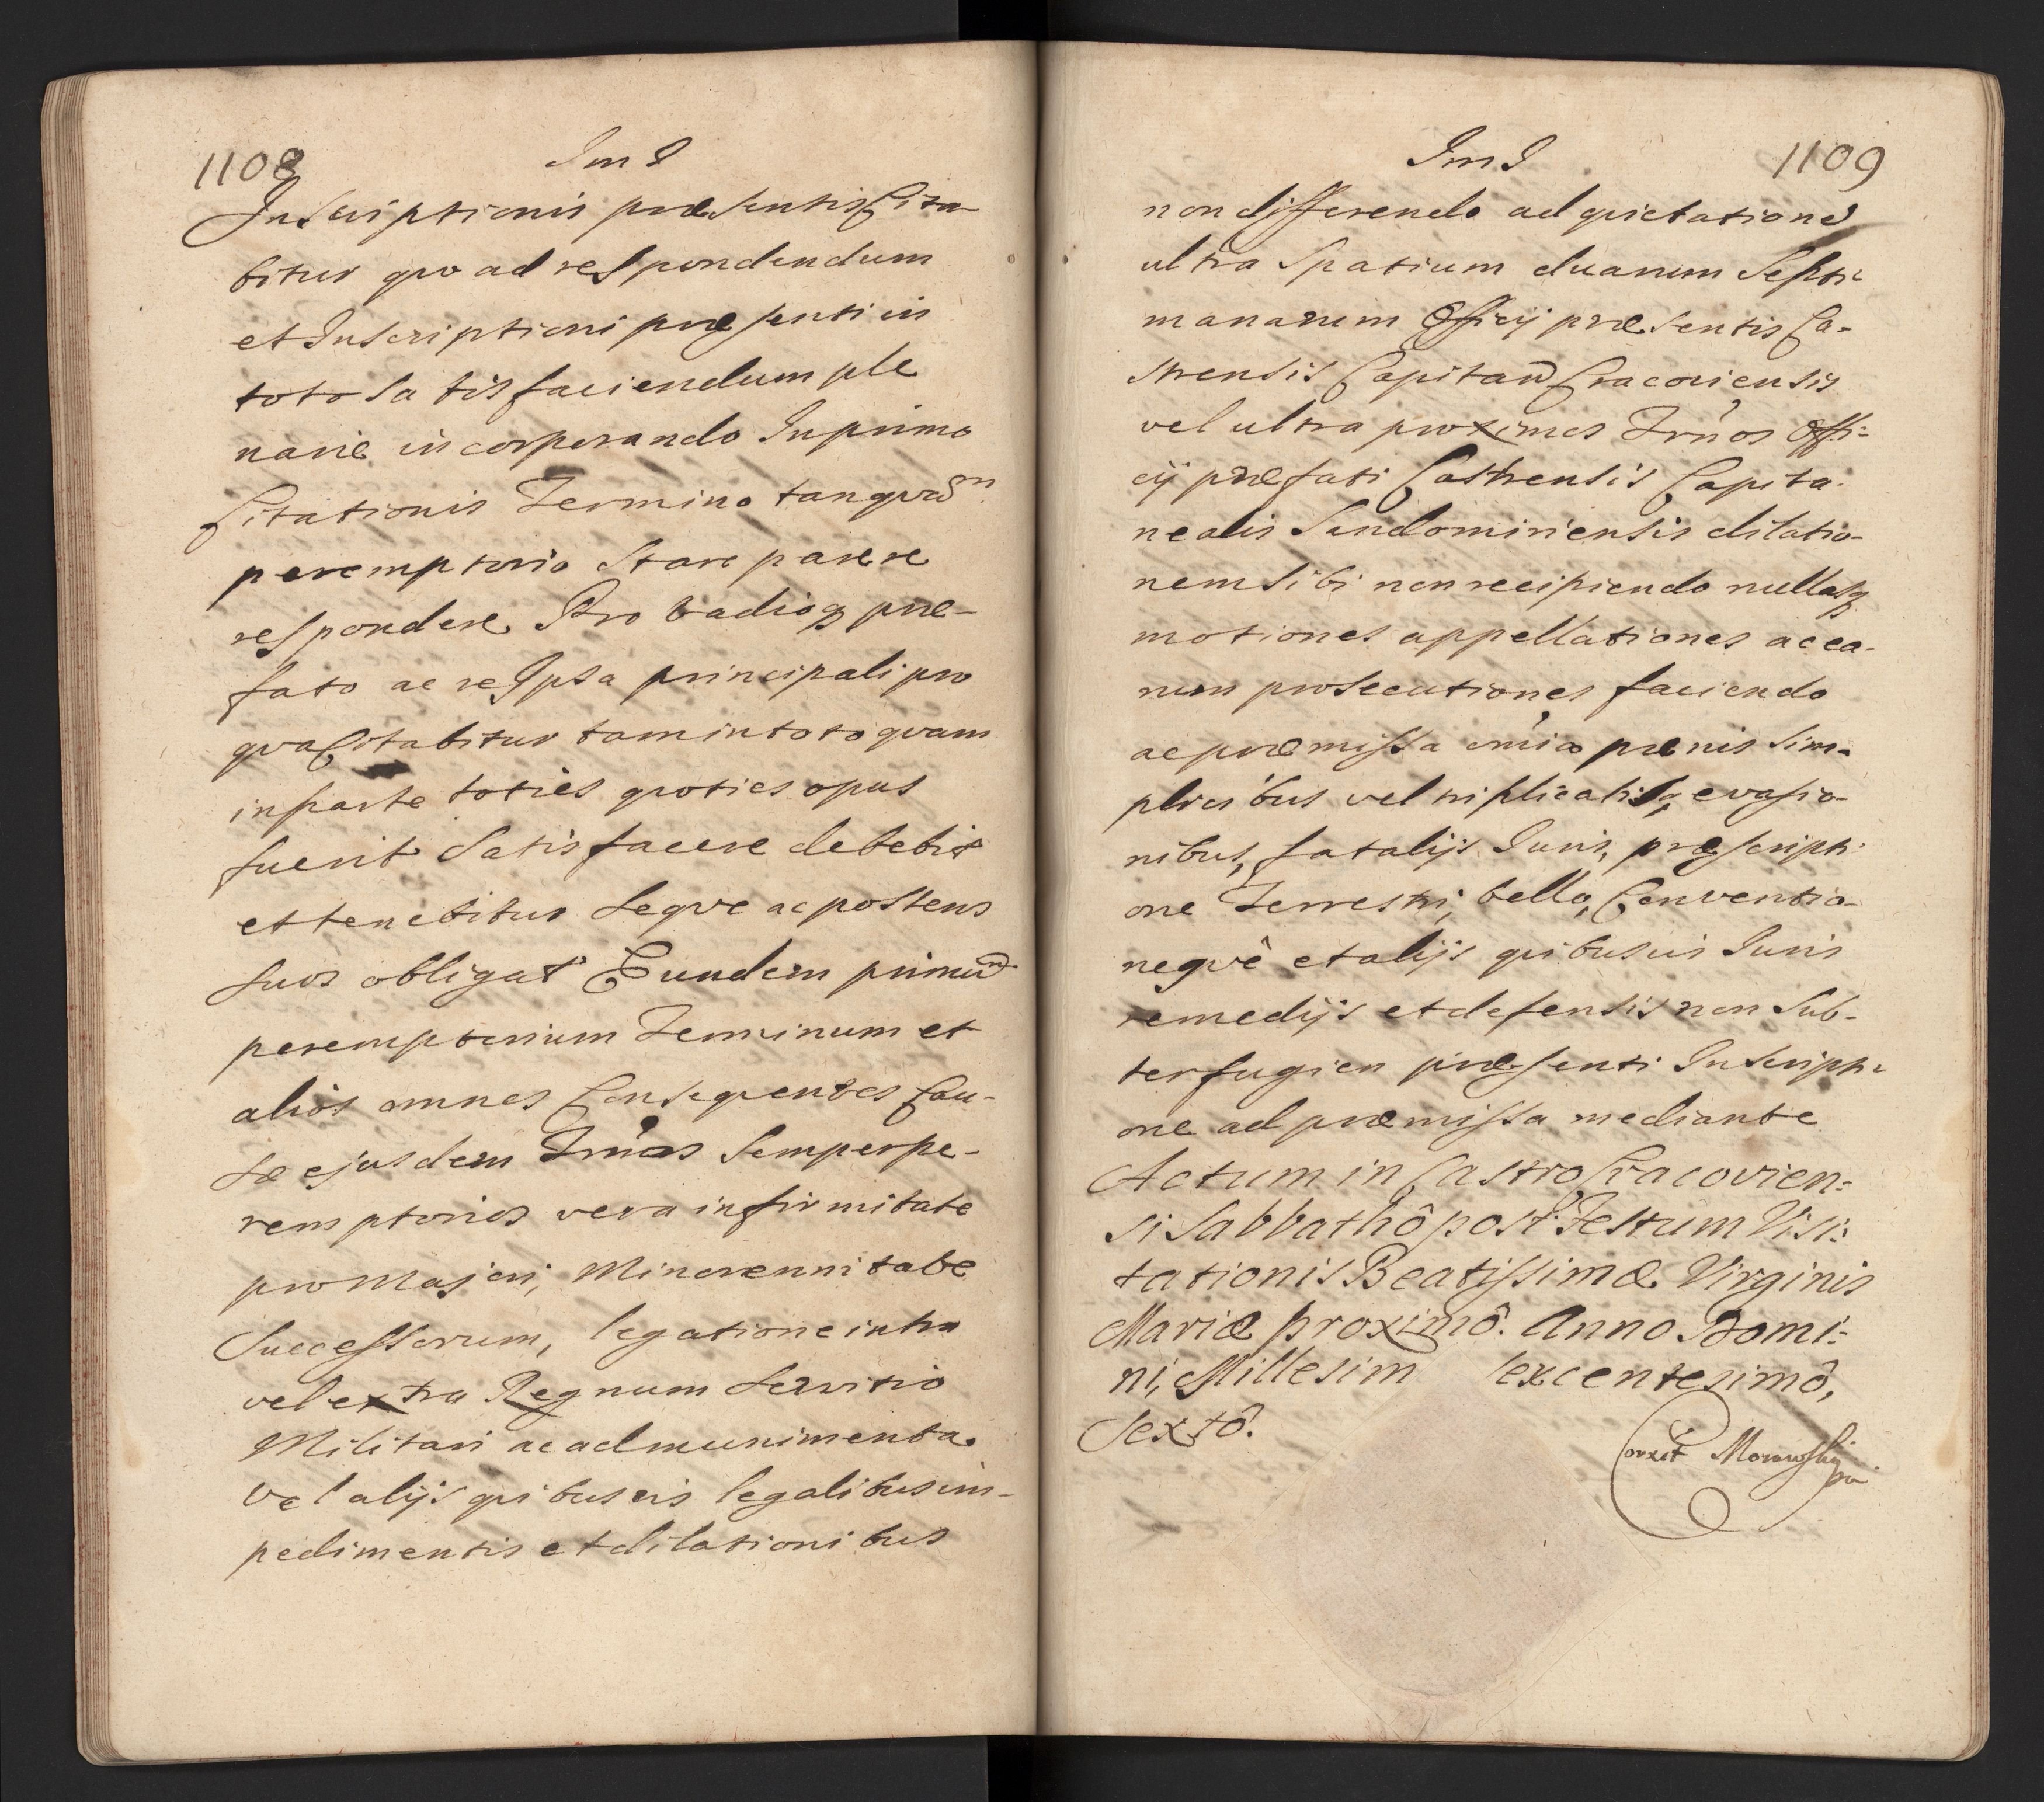 1108
Im I
Inscriptionis præsentis Cita-
bitur quo ad respondendum
et Inscriptioni præsenti in
toto satisfaciendum ple
narie incorporando In primo
Citationis Termino tanqvam
peremptorio Stare parere
respondere Pro vadioq præ-
fato ac re Ipsa principali pro
qva Citabitur tam in toto qvam
in parte toties qvoties opus
fuerit Satisfacere debebit
et tenebitur Seqve ac posteros
suos obligat Eundem primum
peremptorium Terminum et
alios omnes Conseqventes Cau-
sæ ejusdem Trnos Semper pe-
remptorios vera infirmitate
pro Majori, Minorennitate
Successorum, legatione intra
vel extra Regnum Servitio
Militari ac ad munimenta
vel alijs qvibusvis legalibus im-
pedimentis et dilationibus
Im I
1109
non differendo ad qvietatione
ultra Spatium duarum Septi-
manarum Officij præsentis Ca-
strensis Capitan Cracoviensis
vel ultra proximos Trnos Offi-
cij præfati Castrensis Capita-
nealis Sandomiriensis dilatio-
nem sibi non recipiendo nullasq
motiones appellationes ac ea-
rum prosecutiones faciendo
ac præmissa omia pænis Sim-
plicibus vel triplicatis, evasio-
nibus, fatalijs Juris, præscripti-
one Terrestri, bello, Conventio-
neqvè et alijs qvibusvis Juris
remedijs et defensis non Sub-
terfugien præsenti Inscripti-
one ad præmissa mediante
Actum in Castro Cracovien=
si Sabbathô post Festum Visi=
tationis Beatissimæ Virginis
Mariæ proximô. Anno Domi=
ni, Millesim sexcentesimô,
Sextô.
Corxit Morawsky